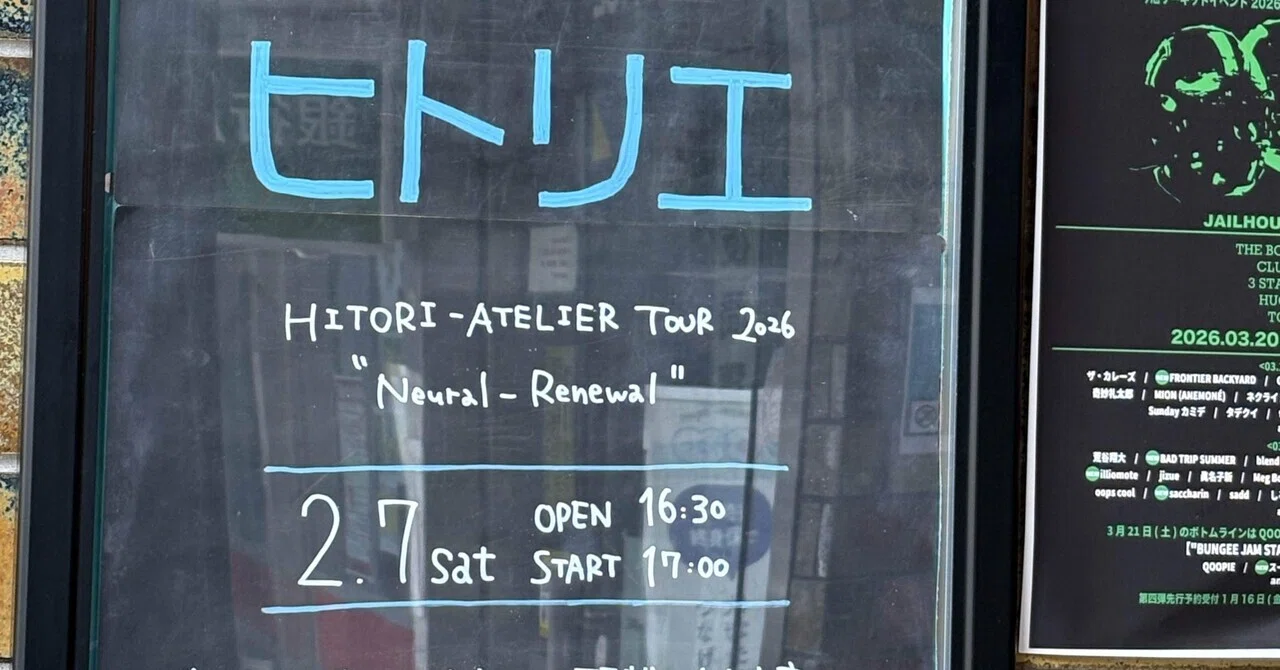 ヒトリエ
HITORI-ATELIER TOUR 2026
"Neural-Renewal"
2.7 sat
OPEN 16:30
START 17:00
銀行
2026
JAILHOU
THE BO
CLU
3 STA
HU
TO
2026.03.20
<03.
ザ・カレーズ / NEW FRONTIER BACKYARD /
奇妙礼太郎 / MION (ANEMONÉ) / ネクライ
Sunday カミデ / タデクイ /
荒谷翔大 / NEW BAD TRIP SUMMER / blend
NEW illiomote / jizue / 眞名子新 / Meg Bo
oops cool / NEW saccharin / sadd / し
3月21日(土)のボトムラインは QOO
["BUNGEE JAM STA
QOOPIE / NEW ス
第四弾先行予約受付1月16日(金